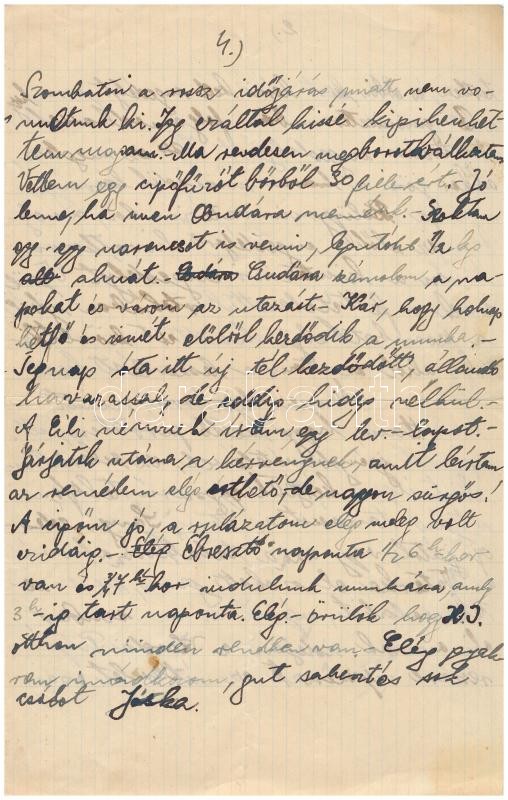 4.)
Szombaton a rossz időjárás miatt nem vo-
nultunk ki. Így ezáltal kissé kipihenhet-
tem magam. Ma rendesen megborotválkoztam
Vettem egy cipőfűzőt bőrből 30 fillérért.- Jó
lenne, ha innen Csudára mennénk.- Szoktam
egy-egy narancsot is venni, legutóbb 1/2 kg
almát.- Csudára számolom a na-
pokat és várom az utazást.- Kár, hogy holnap
hétfő és ismét előlről kezdődik a munka.-
Tegnap óta itt új tél kezdődött, állandó
havazással, de eddig hideg nélkül.-
A Lili néninek írtam egy lev.-lapot.-
Járjatok utána a kérvénynek amit leírtam
az remélem elég érthető,-de nagyon sürgős!
A cipőm jó, a ruházatom elég meleg volt
ezidáig.- Elég Ébresztő naponta 1/2 6 h-kor
van és 3/4 7 h-kor indulunk munkára amely
3 h-ig tart naponta. Elég.- örülök hogy H.I.
otthon minden rendben van.- Elég gyak
ran imádkozom, gut sabesz és sok
csókot Jóska.
darabanth